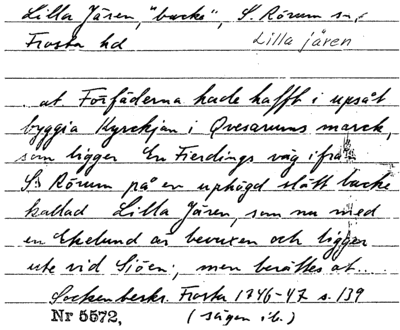 Lilla Jären, "backe", S. Rörum sn,
Frosta hd Lilla jären
.. at Forfäderna hade hafft i upsåt
byggia Kyrckjan i Qvesarums marck,
som ligger En Fierdings väg ifrå
S: Rörum på en uphögd slätt backe
kallad Lilla Jären, som nu med
en Ekelund är bevuxen och ligger
ute vid Siöen; men berättes at....
Sockenbeskr. Frosta 1746-47 s. 139
Nr 5572, (sägen ib.)